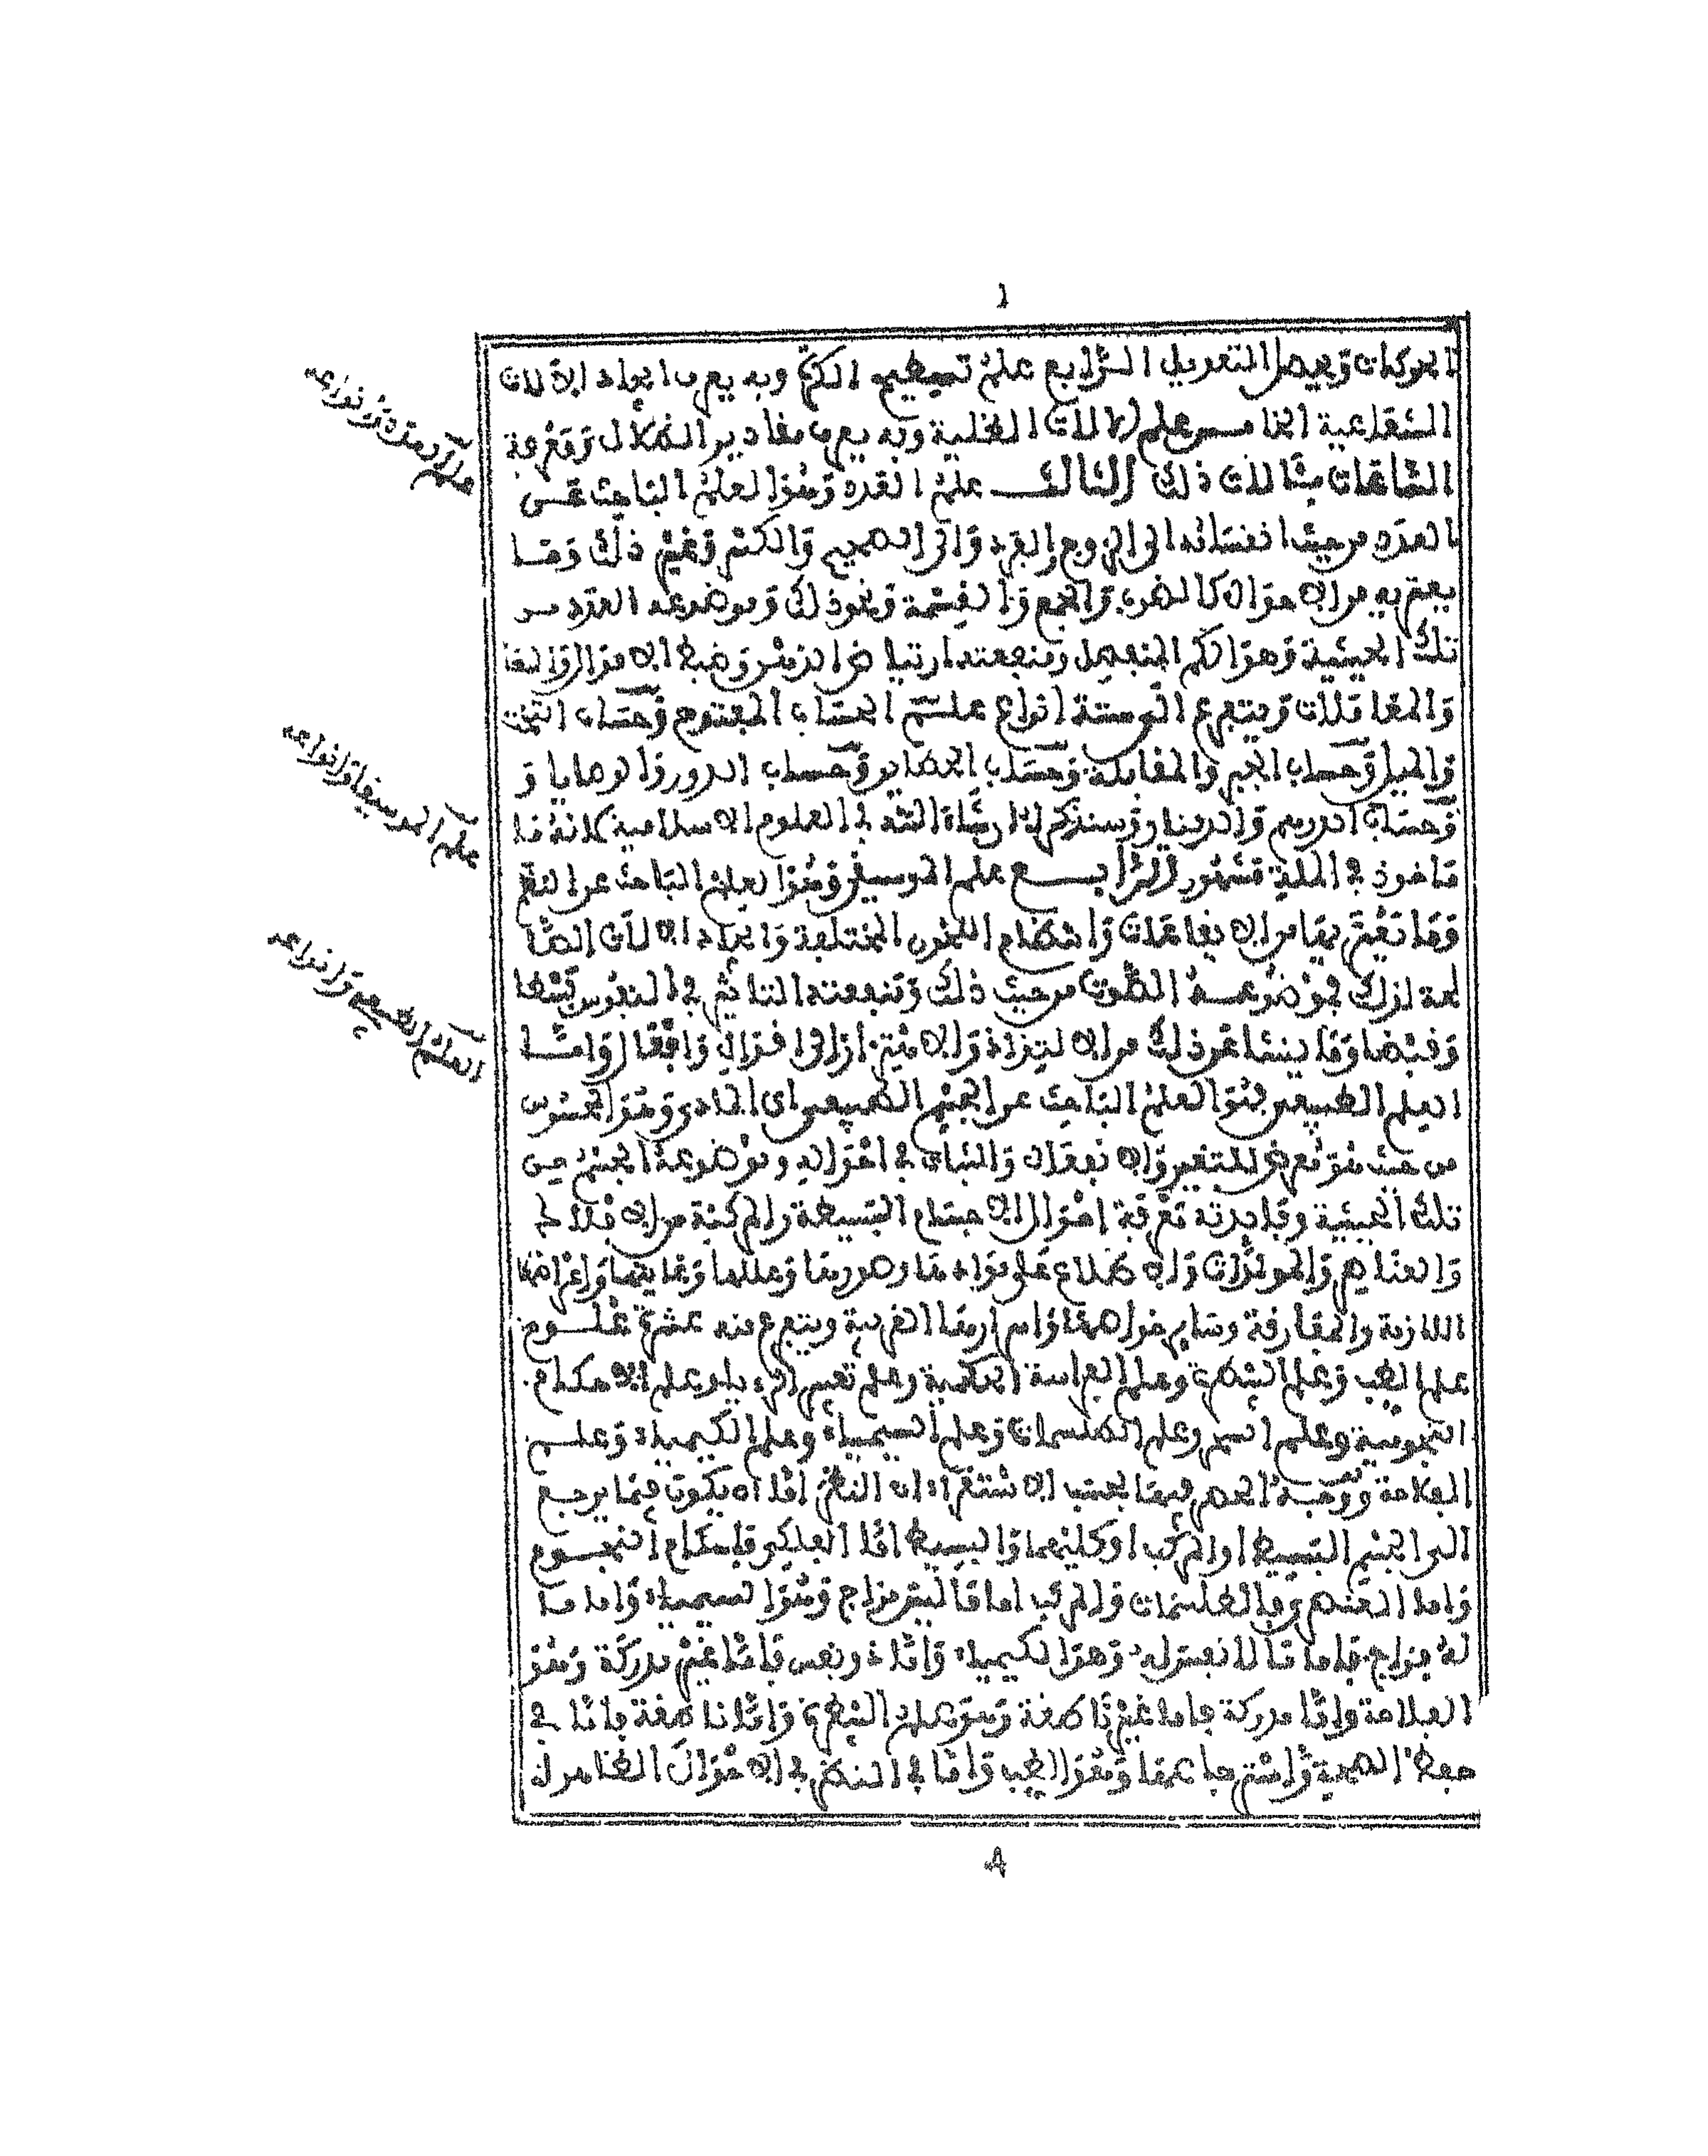 الحركات وبعض التعويل الرابع علم تسطيح الكرة وبه يعرف ايجاد الالات
الشعاعية الخامس علم الالات الظلية وبه يعرف مقادير الظلال ومعرفة
الساعات بتالات ذلك الثالث علم العدد وهو العلم الباحث عن
العدد من حيث انقسامه الى الزوج والفرد والى الصحيح والكسر وغير ذلك وما
يعتريه من الاحوال كالضرب والجمع والقسمة ونحو ذلك وموضوعه العدد من
تلك الحيثية وهو الكم المنفصل ومنفعته ارتياض الذهن وضبط الاموال والمعا
والمعاملات ويتفرع الى ستة انواع علم الحساب المفتوح وحساب التخت
والميل وحساب الجبر والمقابلة وحساب الخطاين وحساب الدور والوصايا و
وحساب الدرهم والدينار وسنذكر ان شاء الله في العلوم الاسلامية لانه
ماخوذ في الملة مشهور الرابع علم الموسيقى وهو العلم الباحث عن النغم
وما تعتريها من الايقاعات وانتظام اللحون المختلفة وايجاد الالات الصا
لحة لذلك فموضوعه الصوت من حيث ذلك ومنفعته التاثير في النفوس بسطا
وقبضا وما ينشا عن ذلك من الالتذاذ والاهتزاز الى اقوال وافعال واما
العلم الطبيعي فهو العلم الباحث عن الجسم الطبيعي اي المادي وهو المحسوس
من حيث هو معرض للتغير والانفعال والثبات في احواله وموضوعه الجسم من
تلك الحيثية وفايدته معرفة احوال الاجسام البسيطة والمركبة من الافلاك
والعناصر والمولدات والاطلاع على موادها وصورها وعللها وغايتها واعراضها
اللازمة والمفارقة وساير خواصها واسرارها الغريبة ويتفرع منه عشرة علوم
علم الطب وعلم البيطرة وعلم الفراسة الحكمية وعلم تعبير الرويا وعلم الاحكام
النجومية وعلم السحر وعلم الطلسمات وعلم السيمياء وعلم الكيمياء وعلم
الفلاحة ووجه الحصر فيها بحسب الاستقراء ان النظر اما ان يكون فيما يرجع
الى الجسم البسيط او المركب او كليهما والبسيط اما الفلكي فاحكام النجوم
واما العنصري فالطلسمات والمركب اما ما ليس مزاج وهو السيمياء واما ما
له مزاج فاما ما لا نفس له وهو الكيمياء واما ذو نفس فاما غير مدركة وهو
الفلاحة واما مدركة فاما غير ناطقة وهو علم البيطرة واما ناطقة فاما في
حفظ الصحة واسترجاعها وهو الطب واما في النظر في الاحوال الظاهر ان
علم العدد وانواعه
علم الموسيقا وانواعه
العلم الطبيعي وانواعه